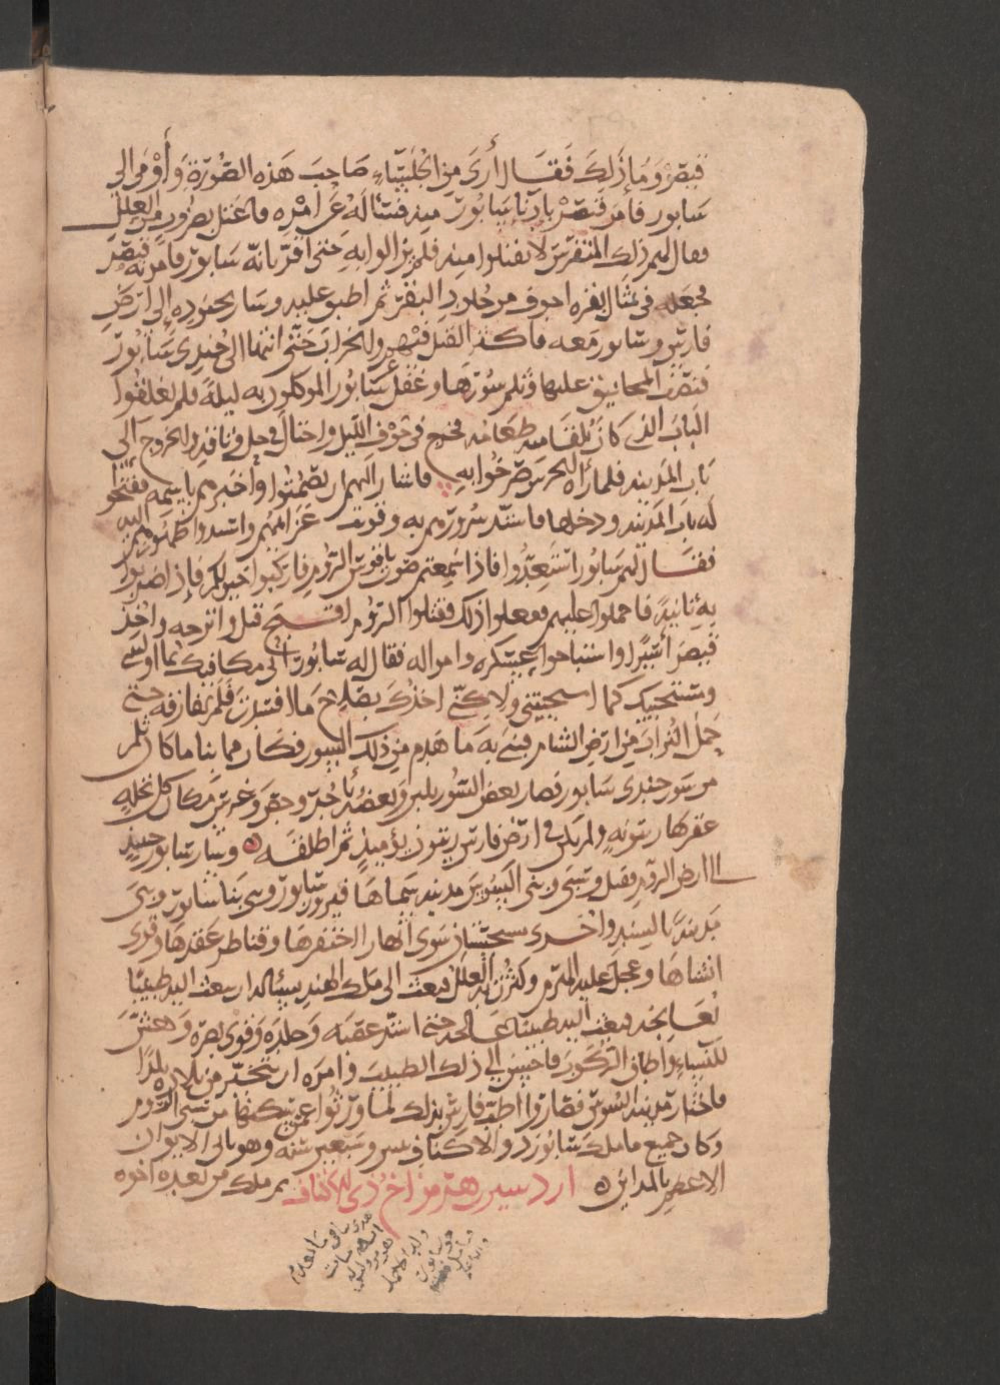 قيصر وما ذلك فقال أرى من الجلساء صاحب هذه الصورة وأومى الى
سابور فامر قيصر بادناء سابور منه فساله عن امره فاعتل بضروب من العلل
فقال لهم ذلك المتفرس لا تقبلوا منه فلم يزالوا به حتى اقر بانه سابور فامر به قيصر
فجعله في تمثال بقرة اجوف من جلود البقر ثم اطبق عليه وسار بجنوده إلى ارض
فارس وسابور معه فاكثر القتل فيهم والخراب حتى انتها الى جندي سابور
فنصب المجانيق عليها وثلم سورها وغفل سابور الموكلون به ليلة فلم يغلقوا
الباب الذي كان يلقا منه طعامه فخرج في جوف الليل واحتال في حل وثاقه والخروج الى
باب المدينة فلما رآه الحرس صرخوا به فاشار اليهم ان يصمتوا وأخبرهم باسمه ففتحوا
له باب المدينة ودخلها فاشتد سرورهم به وقويت عزائمهم
فقال لهم سابور استعدوا فاذا سمعتم صوت ناقوس الروم فاركبوا خيولكم فإذا ضربوا
به ثانية فاحملوا عليهم ففعلوا ذلك فقتلوا الروم اقبح قتل وابرحه واخذ
قيصر أسيرا واستباحوا عسكره وامواله فقال له سابور اني مكافيك بما اوليت
ومستحييك كما استحييتني ولاكني اخذك بصلاح ما افسدت فلم يفارقه حتى
حمل التراب من ارض الشام فبنى به ما هدم من ذلك السور فكان مما بنا ما كان ثلم
من سور جندي سابور فصار بعض السور بلبن وبعضه بآجر وجص وغرس مكان كل نخلة
عقرها زيتونة ولم يكن في ارض فارس زيتون يؤميذ ثم اطلقه وسار سابور حينيذ
الى ارض الروم فقتل وسبى وبنى السوس مدينة سماها فيروز سابور وهي بنا سابور وبنى
مدينة بالسند واخرى بسجستان سوى أنهار احتفرها وقناطر عقدها وقرى
انشاها وعجل عليه الهرم وكثرت به العلل فبعث الى ملك الهند يساله ان يبعث اليه طبيبًا
يعالجه فبعث اليه طبيبا فعالجه حتى اشتد عصبه وجلده وقوى بصره وهش
للنساء واطاق الركوب فاحسن الى ذلك الطبيب وامره ان يتخير من بلاده بلدا
فاختار مدينة السوس فصار اطب فارس بذلك لما ورثوا عمن سكنها من سبي الروم
وكان جميع ما ملك سابور ذو الاكتاف وسبعين سنه وهو باني الايوان
الاعظم بالمدائن اردسير بن هرمز اخو ذي الاكتاف ثم ملك من بعده اخوه